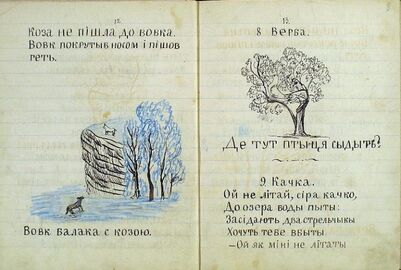 12.
Коза не пішла до вовка.
Вовк покрутыв носом і пішов
геть.
Вовк балака с козою.
13.
8 Верба.
Де тут птыця сыдыть?
9. Качка.
Ой не літай, сіра качко,
До озера воды пыты:
Засідають два стрельчыкы
Хочуть тебе вбыты
— Ой як міні не літаты